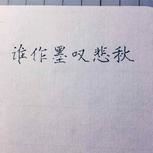 谁作墨叹悲秋